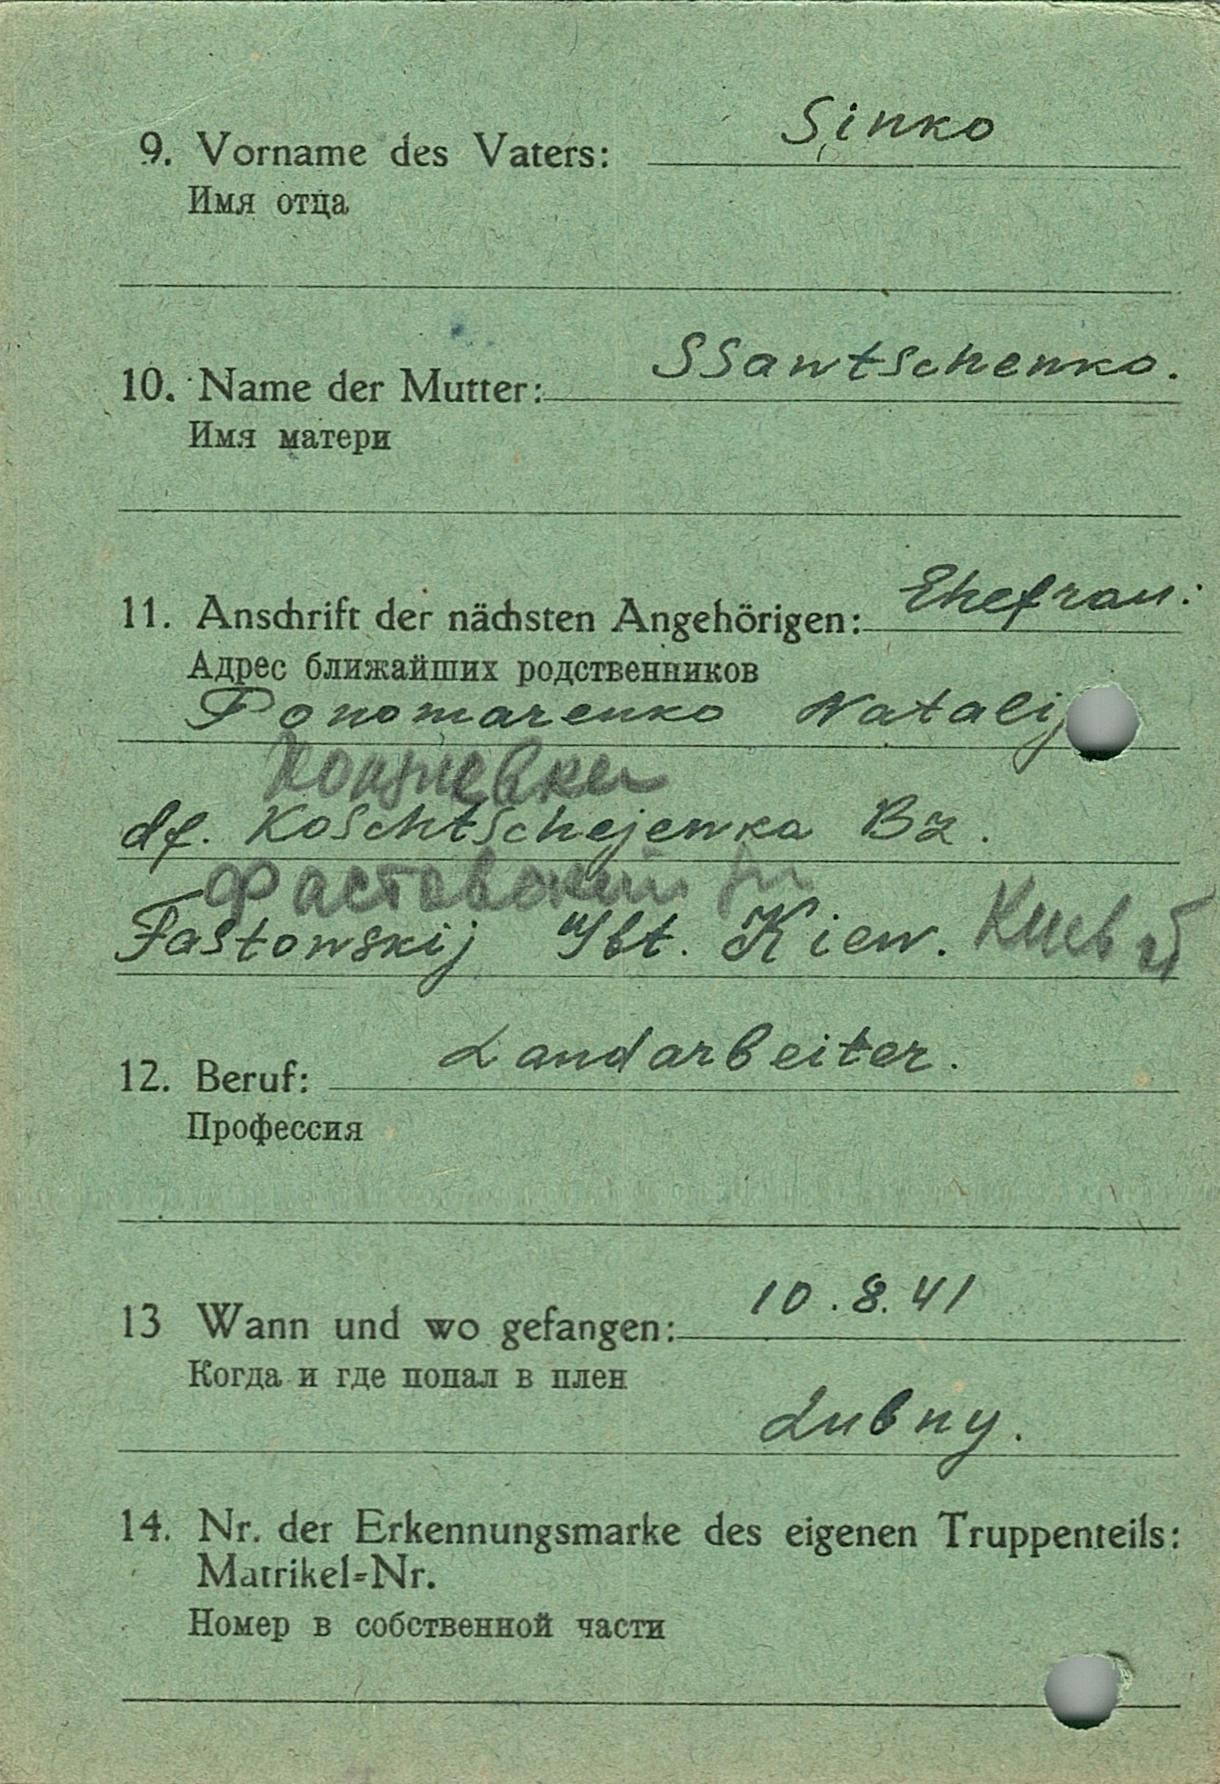 9. Vorname des Vaters: Sinko
Имя отца
10. Name der Mutter: SSawtschenko.
Имя матери
11. Anschrift der nächsten Angehörigen: Ehefrau:
Адрес ближайших родственников
Ponomarenko Natalij
df. Koschtschejewka Bz.
Фастовский
Fastowskij Gbt. Kiew. Киев
12. Beruf: Landarbeiter.
Профессия
13 Wann und wo gefangen: 10.8.41
Когда и где попал в плен
Lubny.
14. Nr. der Erkennungsmarke des eigenen Truppenteils:
Matrikel-Nr.
Номер в собственной части